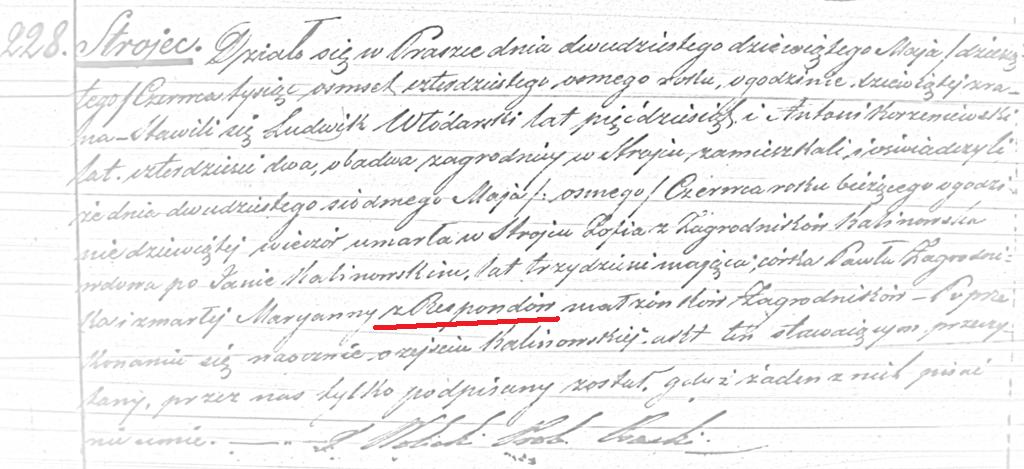 228. Strojec. Działo się w Praszce dnia dwudziestego dziewiątego Maja /dziesią-
tego/ Czerwca tysiąc ośmset czterdziestego osmego roku, o godzinie dziewiątej zra-
na. Stawili się Ludwik Włodarski lat pięćdziesiąt, i Antoni Korzeniewski
lat czterdzieści dwa, obadwa zagrodnicy w Strojcu zamieszkali, i oświadczyli
że dnia dwudziestego siódmego Maja /: osmego / Czerwca roku bieżącego o godzi-
nie dziewiątej wieczór umarła w Strojcu Zofia z Zagrodników Kalinowska
wdowa po Janie Kalinowskim, lat trzydzieści mająca, córka Pawła Zagrodni-
ka i zmarłej Maryanny z Respondów małżonków Zagrodników – Po prze-
konaniu się naocznie o zejściu Kalinowskiej. akt ten stawaiącym przeczy-
tany, przez nas tylko podpisany został, gdyż żaden z nich pisać
nie umie. X Prob. Praszki.